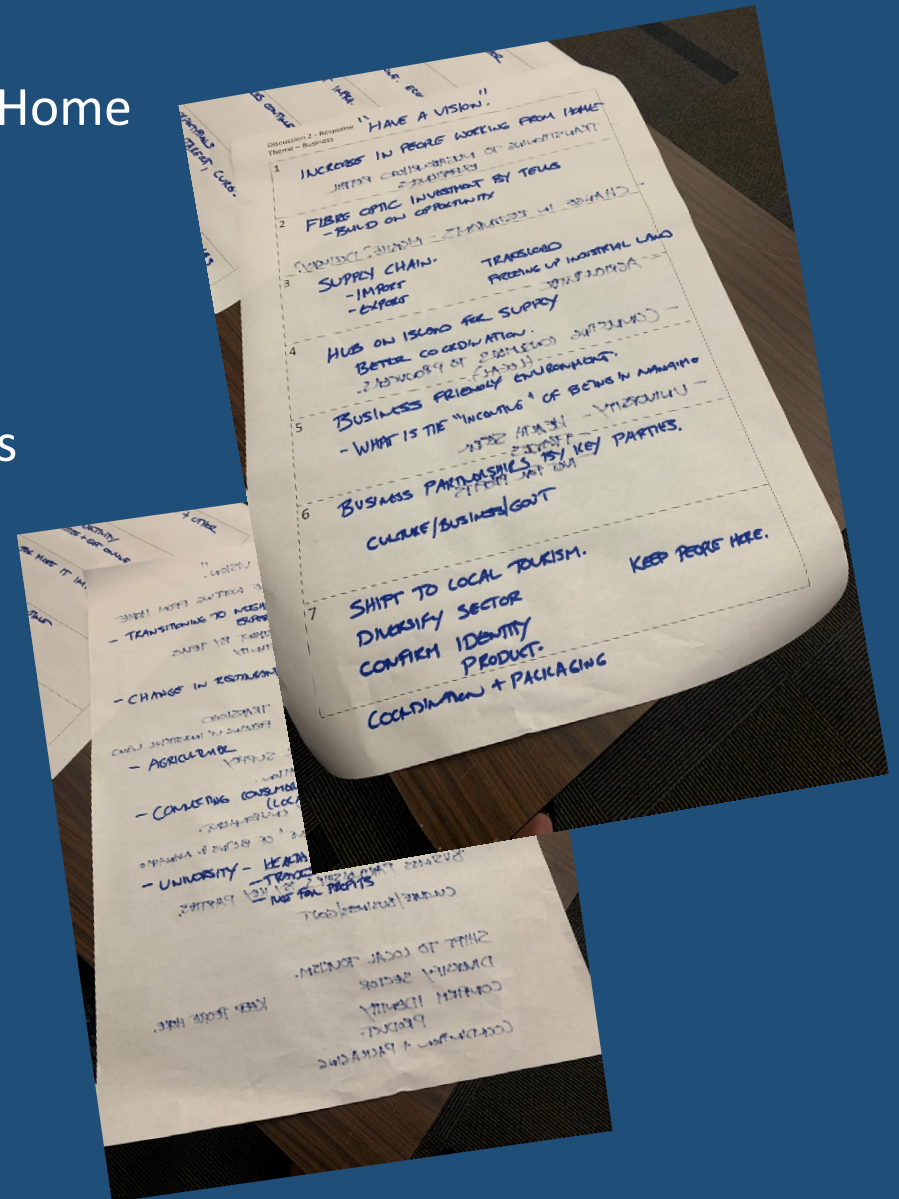 Home
s
Discussion 2 - Response
Theme – Business
"HAVE A VISION".
1 INCREASE IN PEOPLE WORKING FROM HOME
2 FIBRE OPTIC INVESTMENT BY TELUS
- BUILD ON OPPORTUNITY
3 SUPPLY CHAIN.
- IMPORT
- EXPORT
TRANSLOAD
FREEING UP INDUSTRIAL LAND
4 HUB ON ISLAND FOR SUPPLY
BETTER COORDINATION.
5 BUSINESS FRIENDLY ENVIRONMENT.
- WHAT IS THE "INCENTIVE" OF BEING IN NANAIMO
6 BUSINESS PARTNERSHIPS BY KEY PARTIES.
CULTURE/BUSINESS/GOVT
7 SHIFT TO LOCAL TOURISM.
KEEP PEOPLE HERE.
DIVERSIFY SECTOR
CONFIRM IDENTITY
PRODUCT.
COORDINATION + PACKAGING
+ OTHER
- TRANSITIONING TO
- CHANGE IN RESTAURANT
- AGRICULTURE
- CONNECTING CONSUMER
(LOCA
- UNIVERSITY - HEALTH
- NOT FOR PROFITS